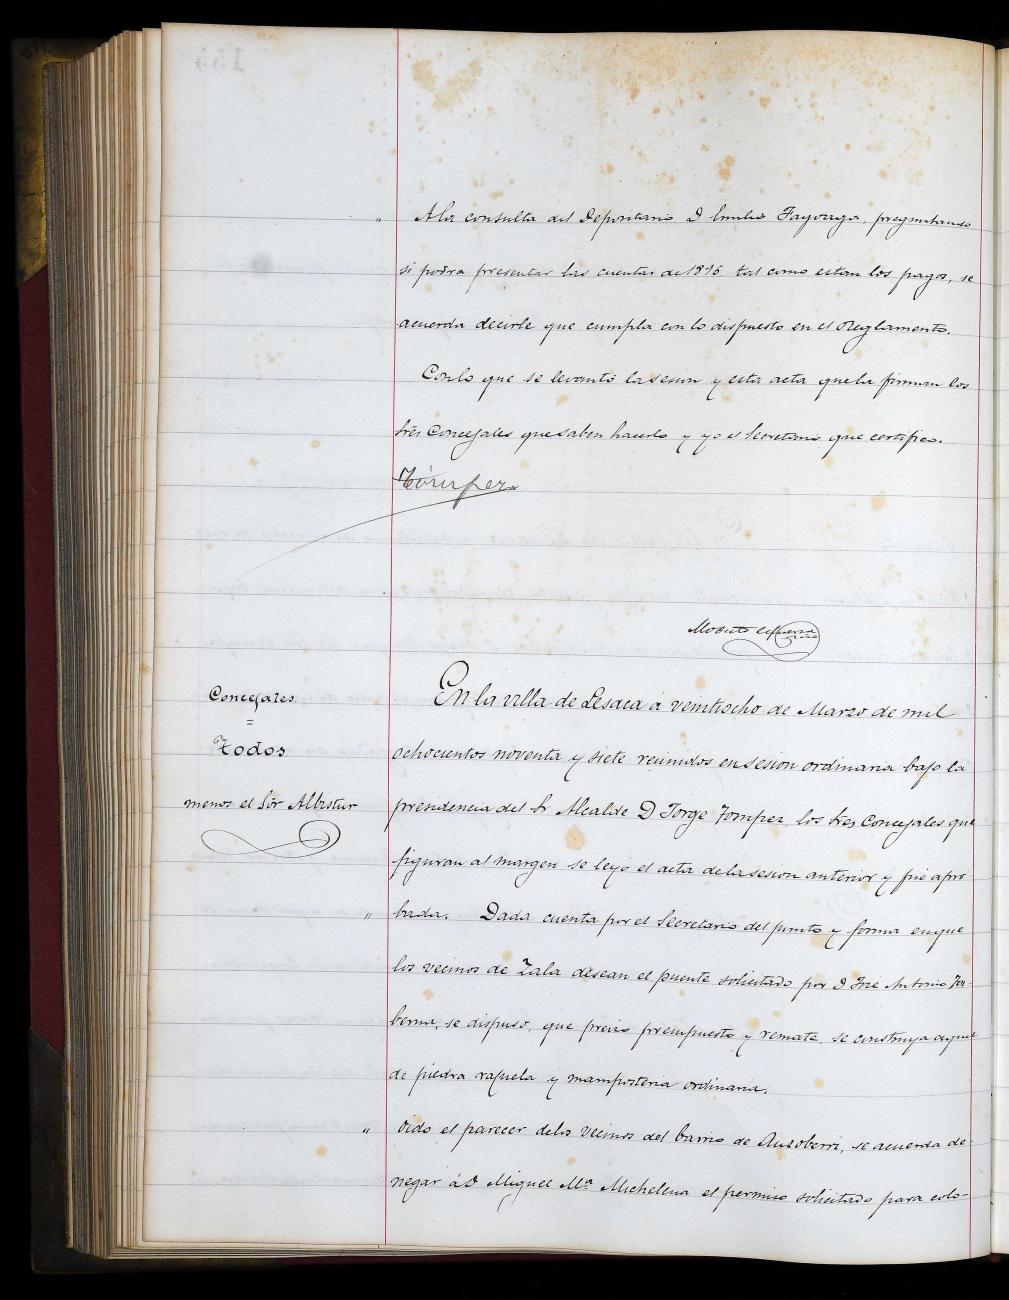 " A la consulta del Depositario D Emilio Tayoaga, preguntando
si podra presentar las cuentas de 1896 tal como estan los pagos, se
acuerda decirle que cumpla con lo dispuesto en el Reglamento.
Con lo que se levantó la sesion y esta acta que la firman los
tres Concejales que saben hacerlo y yo el Secretario que certifico.
Modesto
Concejales.
=
Todos
menos el Sór Albistur
En la villa de Lesaca á veintiocho de Marzo de mil
ochocientos noventa y siete reunidos en sesion ordinaria bajo la
presidencia del Sr Alcalde D Jorge Tompez, los tres Concejales que
figuran al margen se leyó el acta de la sesion anterior y fué apro
" bada. Dada cuenta por el Secretario del punto y forma en que
los vecinos de Zala desean el puente solicitado por D José Antonio
se dispuso, que previo presupuesto y remate, se construya aquel
de piedra rajuela y mamposteria ordinaria.
" Oido el parecer de los vecinos del barrio de Auzoberri, se acuerda de-
negar á D Miguel Mª Michelena el permiso solicitado para colo-